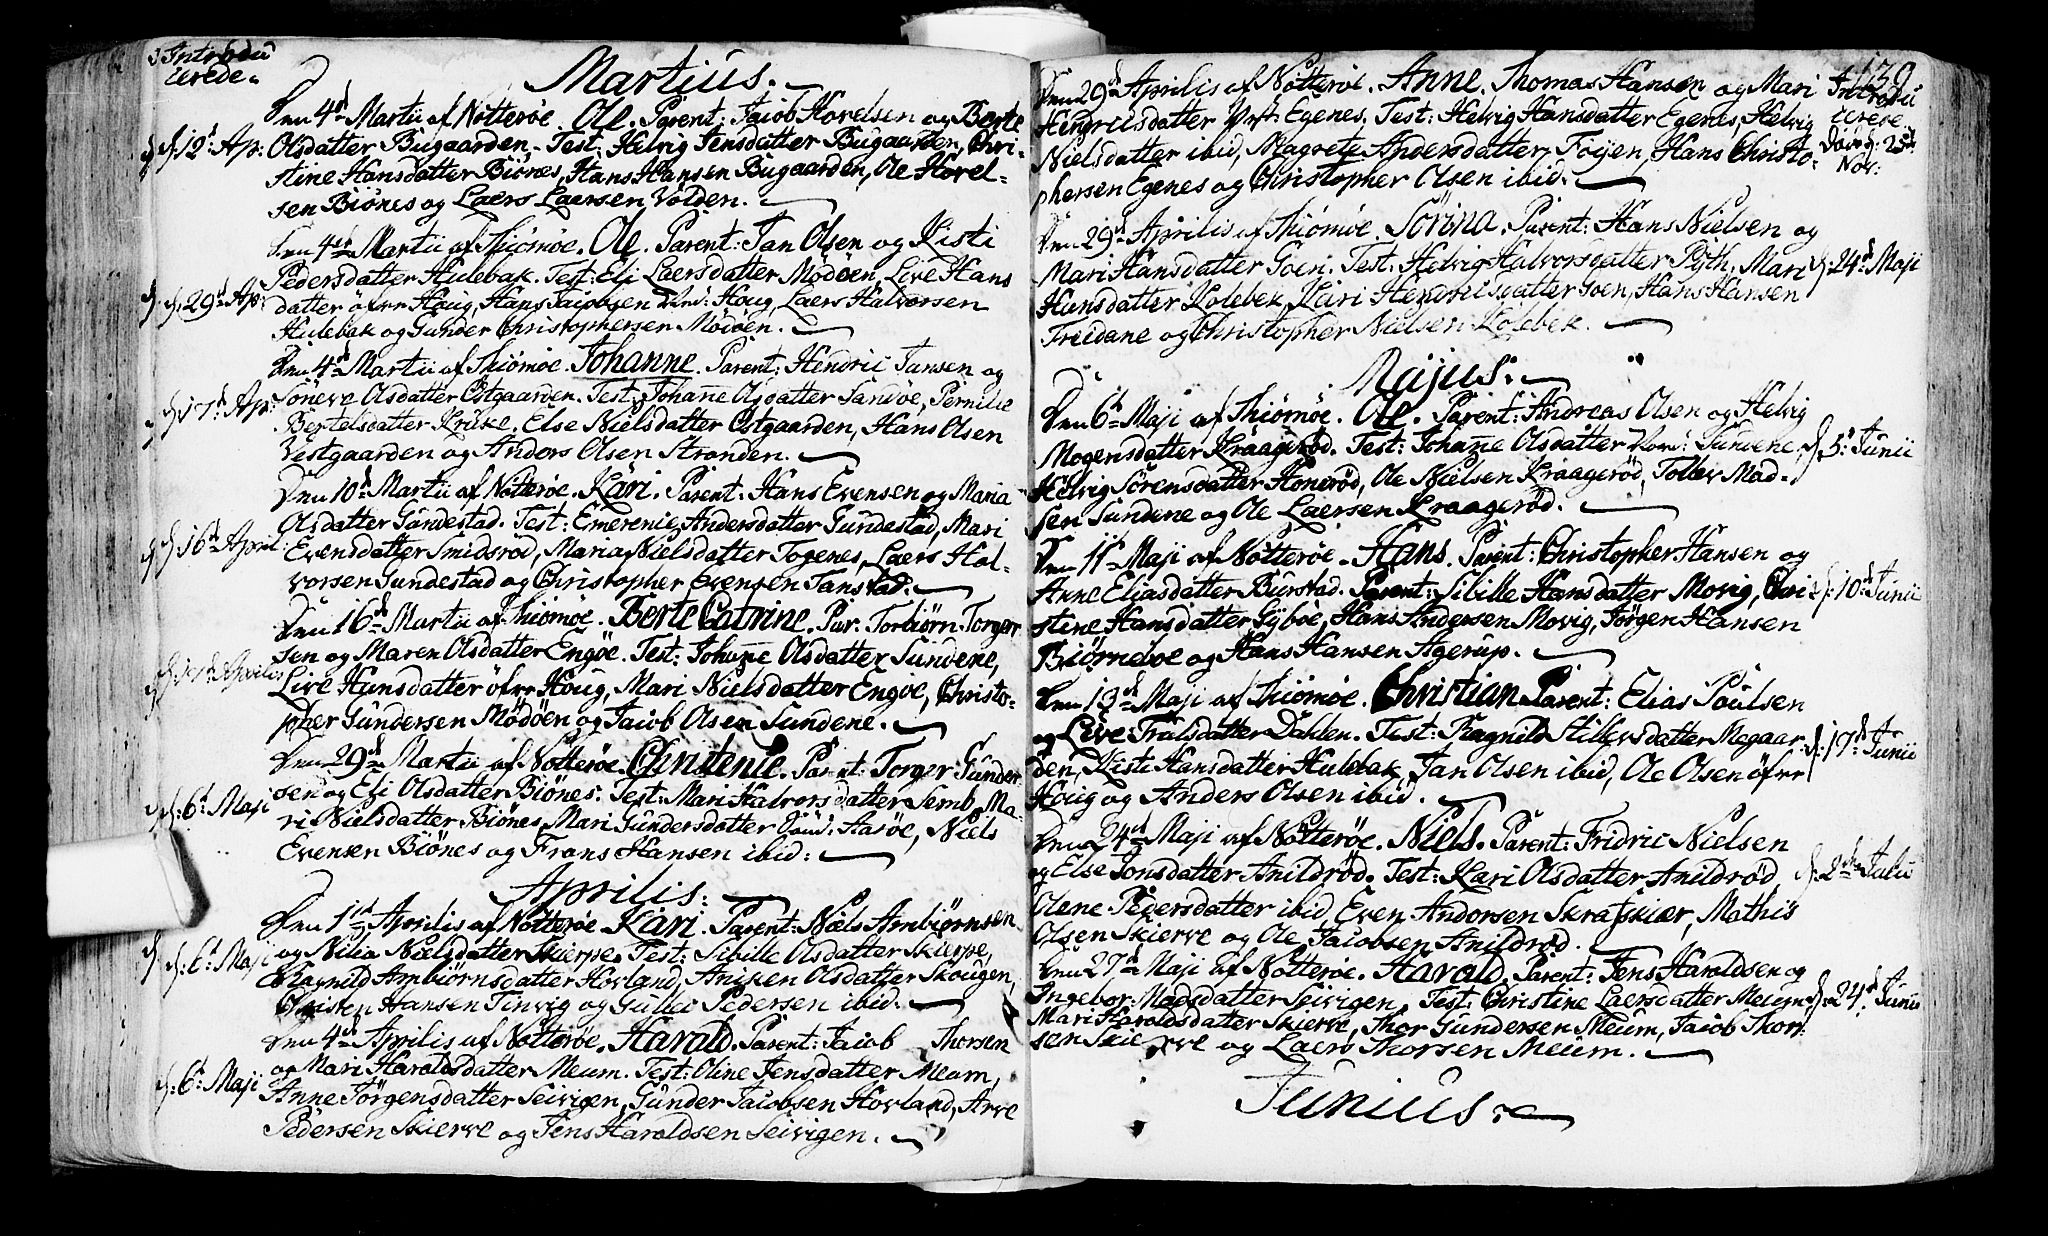 Introdu
cerede.
Martius.
Den 4de Martii af Nøtterøe. Ole. Parent: Jacob Hovelsen og Berte
d: 12te Ap: Olsdatter Bugaarden. Test: Helvig Jensdatter Bugaarden, Chri-
stine Hansdatter Biönes, Hans Hansen Bugaarden, Ole Hovel-
sen Biönes og Laers Laersen Volden.
Den 4de Martii af Thiömöe. Ole. Parent: Jan Olsen og Kisti
Pedersdatter Hulebak. Test: Eli Laersdatter Mödöen, Live Hans
d: 29de Ap: datter öfre Houg, Hans Jacobsen Houg, Laers Halvorsen
Hulebak og Gunder Christophersen Mödöen.
Den 4de Martii af Thiömöe. Johanne. Parent: Hendric Jansen og
d: 17de Ap: Söneve Olsdatter Östgaarden. Test: Johanne Olsdatter Sandöe, Pernille
Bertelsdatter Kruke, Else Nielsdatter Östgaarden, Hans Olsen
Vestgaarden og Anders Olsen Stranden.
Den 10de Martii af Nøtterøe. Kari. Parent: Hans Evensen og Maria
Olsdatter Gundestad. Test: Emerenie Andersdatter Gundestad, Mari
d: 16de April: Evensdatter Smidsröd, Maria Nielsdatter Togenes, Laers Hal-
vorsen Gundestad og Christopher Evensen Tanstad.
Den 16de Martii af Thiömöe. Berte Catrine. Par: Torbiörn Torger
sen og Maren Olsdatter Engöe. Test: Johanne Olsdatter Sundene,
d: 17de Aprilis Live Hansdatter öfre Houg, Mari Nielsdatter Engöe, Christo-
pher Gundersen Mödöen og Jacob Olsen Sundene.
Den 29de Martii af Nøtterøe. Christenie. Parent: Torger Gunder-
sen og Eli Olsdatter Biönes. Test: Mari Halvorsdatter Semb, Ma-
d: 6te Maji ri Nielsdatter Biönes, Mari Gundersdatter Aaröe, Niels
Evensen Biönes og Frans Hansen ibid:
Aprilis:
Den 1ste Aprilis af Nøtterøe Kari. Parent: Niels Ambiörnsen
d: 6te Maji og Nilia Nielsdatter Skierpe. Test: Sibille Olsdatter Skierpe,
Ragnild Ambiörnsdatter Hovland, Aniken Olsdatter Skougen,
Christen Hansen Tinvig og Gullic Pedersen ibid.
Den 4de Aprilis af Nøtterøe. Harald. Parent: Jacob Thorsen
d: 6te Maji og Mari Haroldsdatter Meum. Test: Oline Jensdatter Meum,
Anne Jörgensdatter Seivigen, Gunder Jacobsen Hovland, Arve
Pedersen Skierve og Jens Haroldsen Seivigen.
139
Introdu
cerede
Den 29de Aprilis af Nøtterøe. Anne. Thomas Hansen og Mari
Hendricsdatter Egenes. Test: Helvig Hansdatter Egenes, Helvig
Nielsdatter ibid, Magrete Andersdatter Föyen, Hans Christo- 25de
Nov:
phersen Egenes og Christopher Olsen ibid.
Den 29de Aprilis af Thiömöe. Sörina. Parent: Hans Nielsen og
Mari Hansdatter Goen. Test: Helvig Halvorsdatter Pyth, Mari d: 24de Maji
Hansdatter Kolebek, Kari Hendricsdatter Goen, Hans Hansen
Treidane og Christopher Nielsen Kolebek.
Majus:
Den 6te Maji af Thiömöe. Ole. Parent: Andreas Olsen og Helvig
Mogensdatter Kraageröd. Test: Johanne Olsdatter Sundene d. 5te Junii
Helvig Sörensdatter Honeröd, Ole Nielsen Kraageröd, Tollev Mad-
sen Sundene og Ole Laersen Kraageröd.
Den 11te Maji af Nøtterøe. Hans. Parent: Christopher Hansen og
Anne Eliasdatter Burstad. Parent: Sibille Hansdatter Movig, Chri d: 10de Junii
stine Hansdatter Gyböe, Hans Andersen Movig, Jörgen Hansen
Biörneboe og Hans Hansen Agerup.
Den 13de Maji af Thiömöe. Christian. Parent: Elias Poulsen
og Live Trulsdatter Dahlen. Test: Ragnild Stillevsdatter Mogaar- d: 17de Junii
den, Kisti Hansdatter Hulebak, Jan Olsen ibid, Ole Olsen öfre
Houg og Anders Olsen ibid.
Den 24de Maji af Nøtterøe. Niels. Parent: Fridric Nielsen
og Else Jonsdatter Anildröd. Test: Kari Olsdatter Anildröd d: 2den Julii
Olene Pedersdatter ibid, Even Andersen Skrafskiær, Mathis
Olsen Skierve og Ole Jacobsen Anildröd.
Den 27de Maji af Nøtterøe. Harald. Parent: Jens Haroldsen og
Ingebor: Madsdatter Seivigen. Test: Christine Laersdatter Meum d: 24de Junii
Mari Haroldsdatter Skierve, Thor Gundersen Meum, Jacob Thor-
sen Skierve og Laers Thorsen Meum.
Junius.